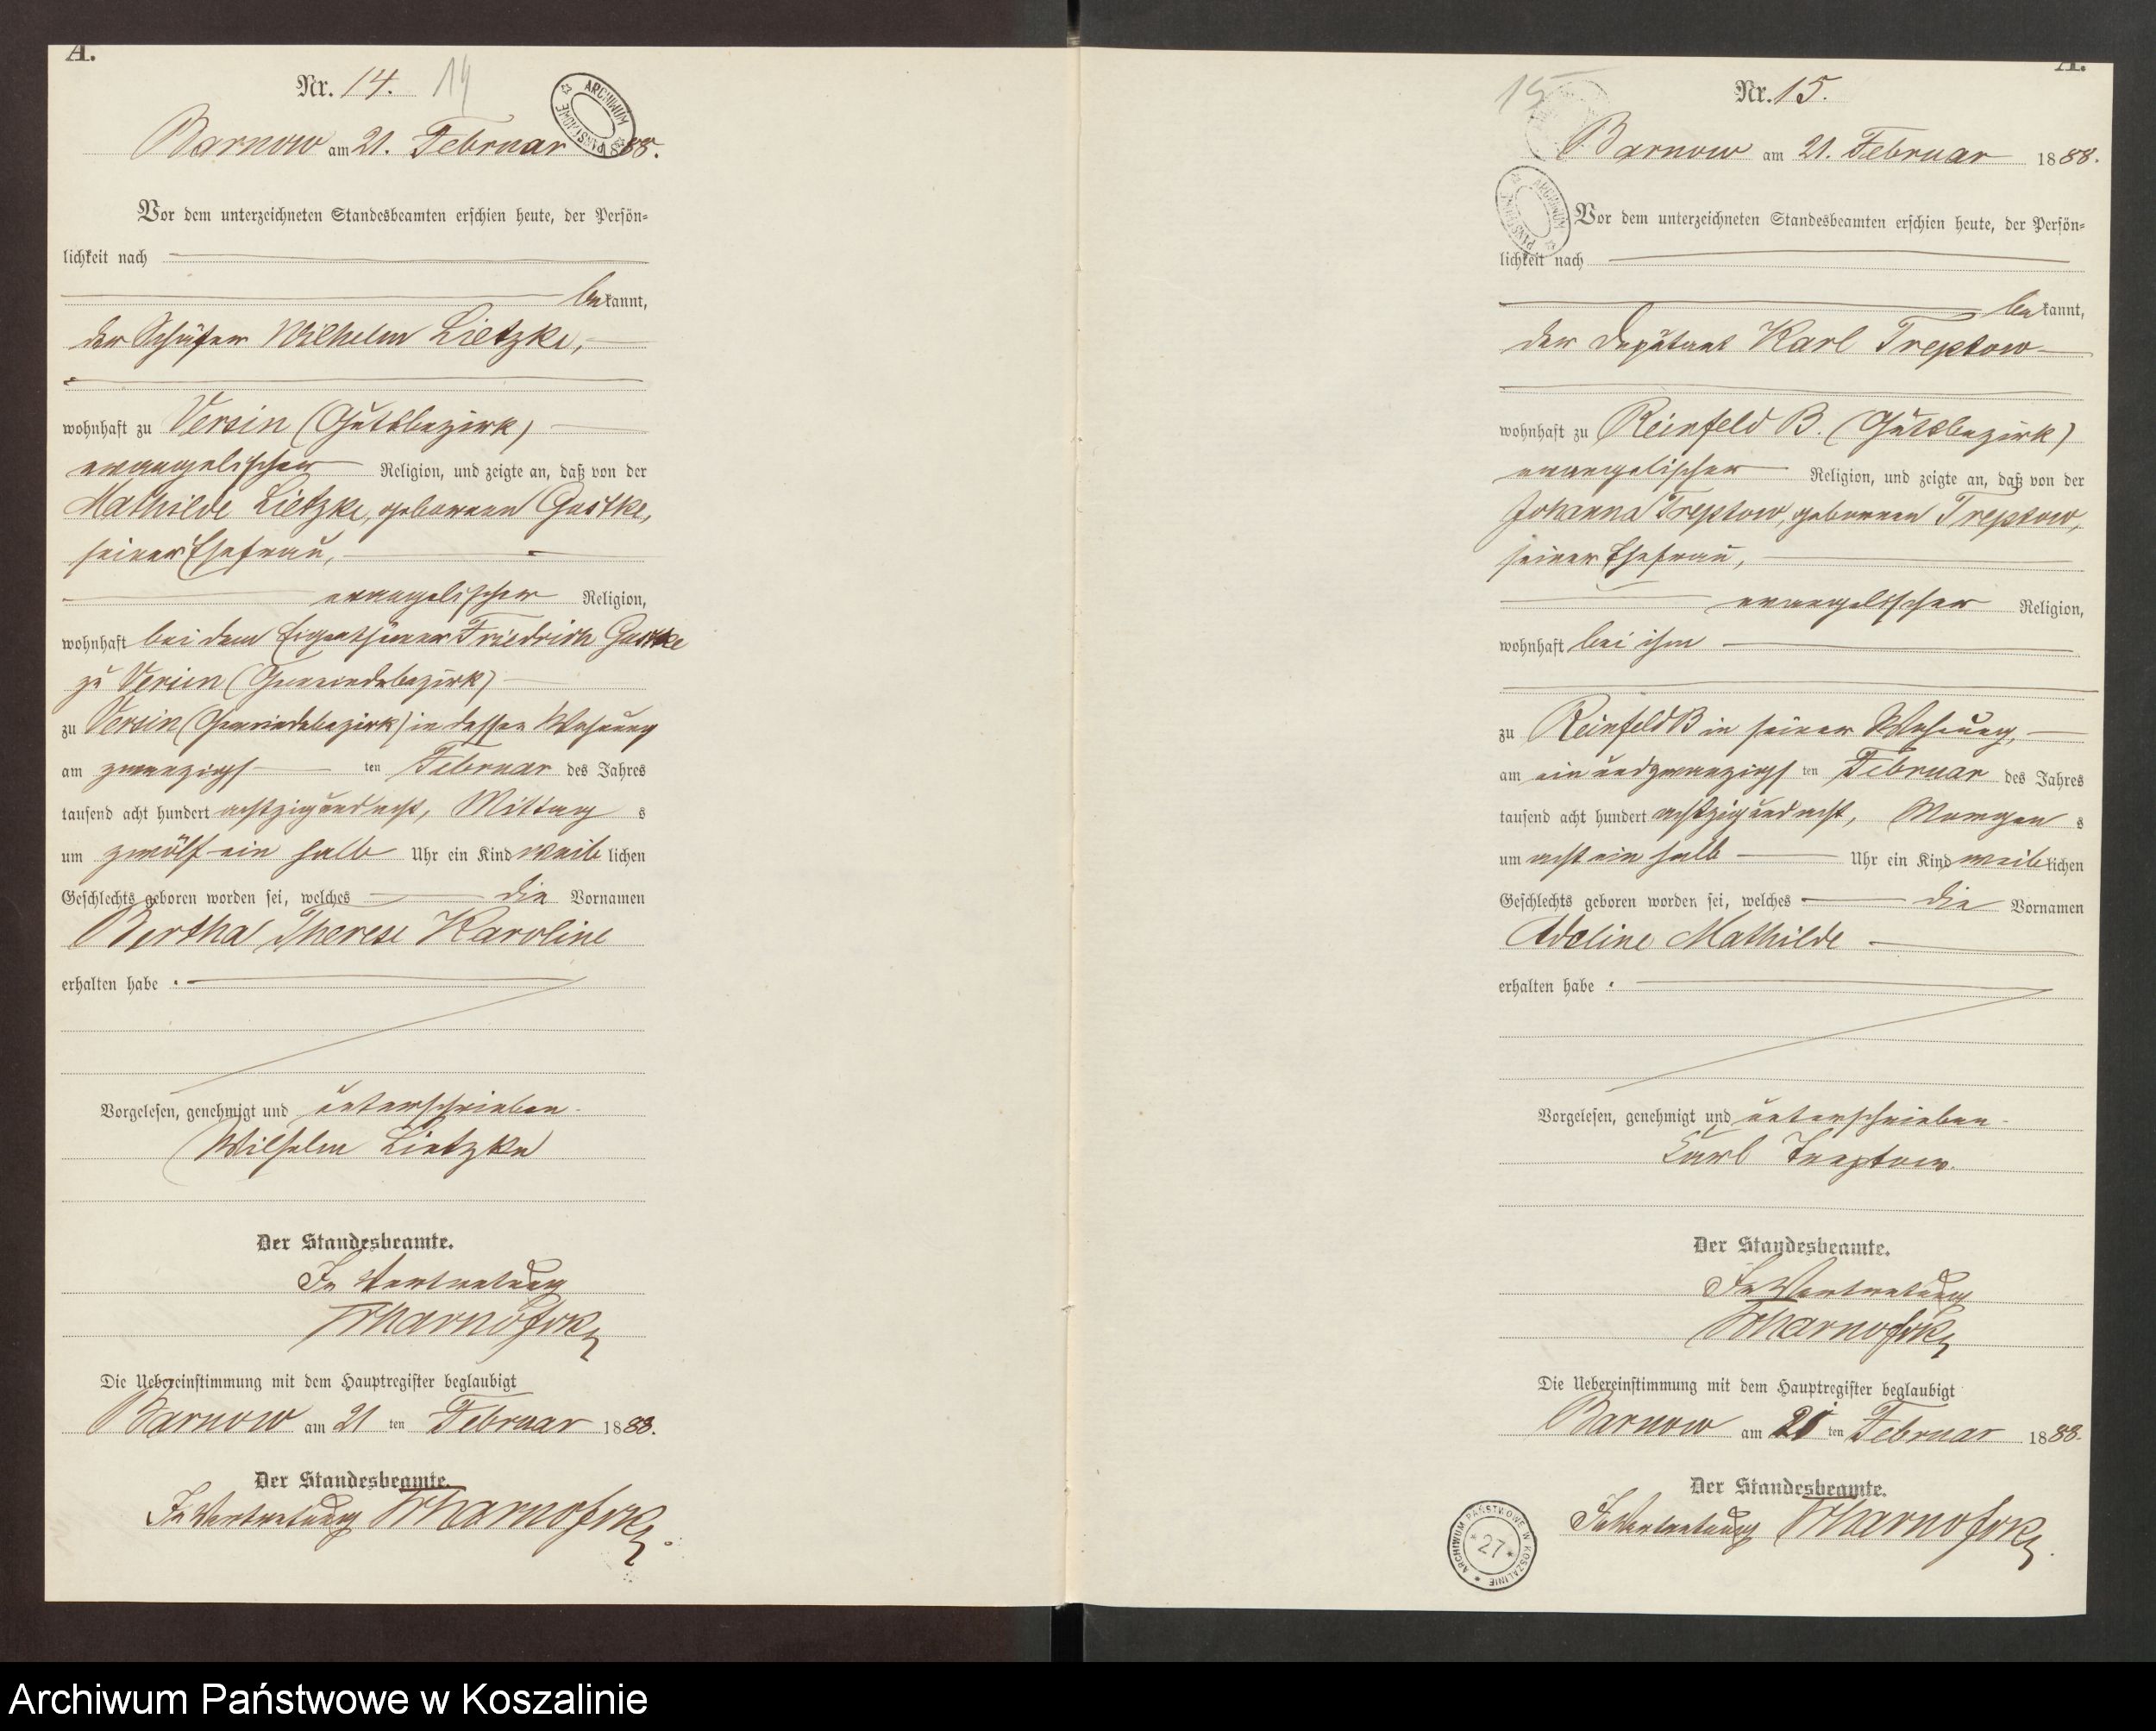 A.
Nr. 14. 14
ARCHIWUM PAŃSTWOWE
Barnow am 21. Februar 1888.
Vor dem unterzeichneten Standesbeamten erschien heute, der Persön-
lichkeit nach
bekannt,
der Schäfer Wilhelm Lietzke,
wohnhaft zu Versin (Gutsbezirk)
evangelischer Religion, und zeigte an, daß von der
Mathilde Lietzke, geborenen Gustke,
seiner Ehefrau,
evangelischer Religion,
wohnhaft bei dem Eigenthümer Friedrich Gustke
zu Versin (Gemeindebezirk)
zu Versin (Gemeindebezirk) in dessen Wohnung
am zwanzigsten Februar des Jahres
tausend acht hundert achtzig und acht, Mittags
um zwölf ein halb Uhr ein Kind weiblichen
Geschlechts geboren worden sei, welches die Vornamen
Bertha Therese Karoline
erhalten habe.
Vorgelesen, genehmigt und unterschrieben.
Wilhelm Lietzke
Der Standesbeamte.
In Vertretung
Die Uebereinstimmung mit dem Hauptregister beglaubigt
Barnow am 21 ten Februar 1888.
Der Standesbeamte.
In Vertretung
A.
15 Nr. 15.
Barnow am 21. Februar 1888.
ARCHIWUM PAŃSTWOWE
Vor dem unterzeichneten Standesbeamten erschien heute, der Persön-
lichkeit nach
bekannt,
der Deputant Karl Treptow
wohnhaft zu Reinfeld B. (Gutsbezirk)
evangelischer Religion, und zeigte an, daß von der
Johanna Treptow, geborenen Treptow,
seiner Ehefrau,
evangelischer Religion,
wohnhaft bei ihm
zu Reinfeld B in seiner Wohnung,
am ein und zwanzigsten Februar des Jahres
tausend acht hundert achtzig und acht, Morgens
um acht ein halb Uhr ein Kind weiblichen
Geschlechts geboren worden sei, welches die Vornamen
Adeline Mathilde
erhalten habe.
Vorgelesen, genehmigt und unterschrieben.
Carl Treptow.
Der Standesbeamte.
In Vertretung
Die Uebereinstimmung mit dem Hauptregister beglaubigt
Barnow am 21 ten Februar 1888.
Der Standesbeamte.
In Vertretung
ARCHIWUM PAŃSTWOWE W KOSZALINIE * 27 *
Archiwum Państwowe w Koszalinie